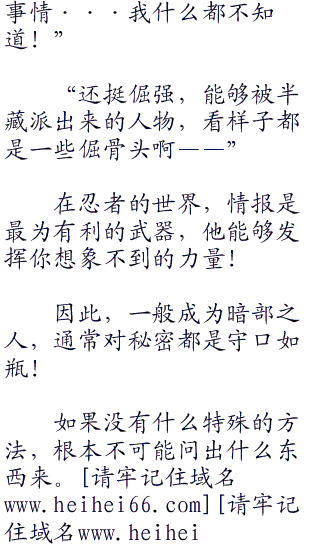 事情···我什么都不知
道！”
“还挺倔强，能够被半
藏派出来的人物，看样子都
是一些倔骨头啊——”
在忍者的世界，情报是
最为有利的武器，他能够发
挥你想象不到的力量！
因此，一般成为暗部之
人，通常对秘密都是守口如
瓶！
如果没有什么特殊的方
法，根本不可能问出什么东
西来。[请牢记住域名
www.heihei66.com][请牢记
住域名www.heihei